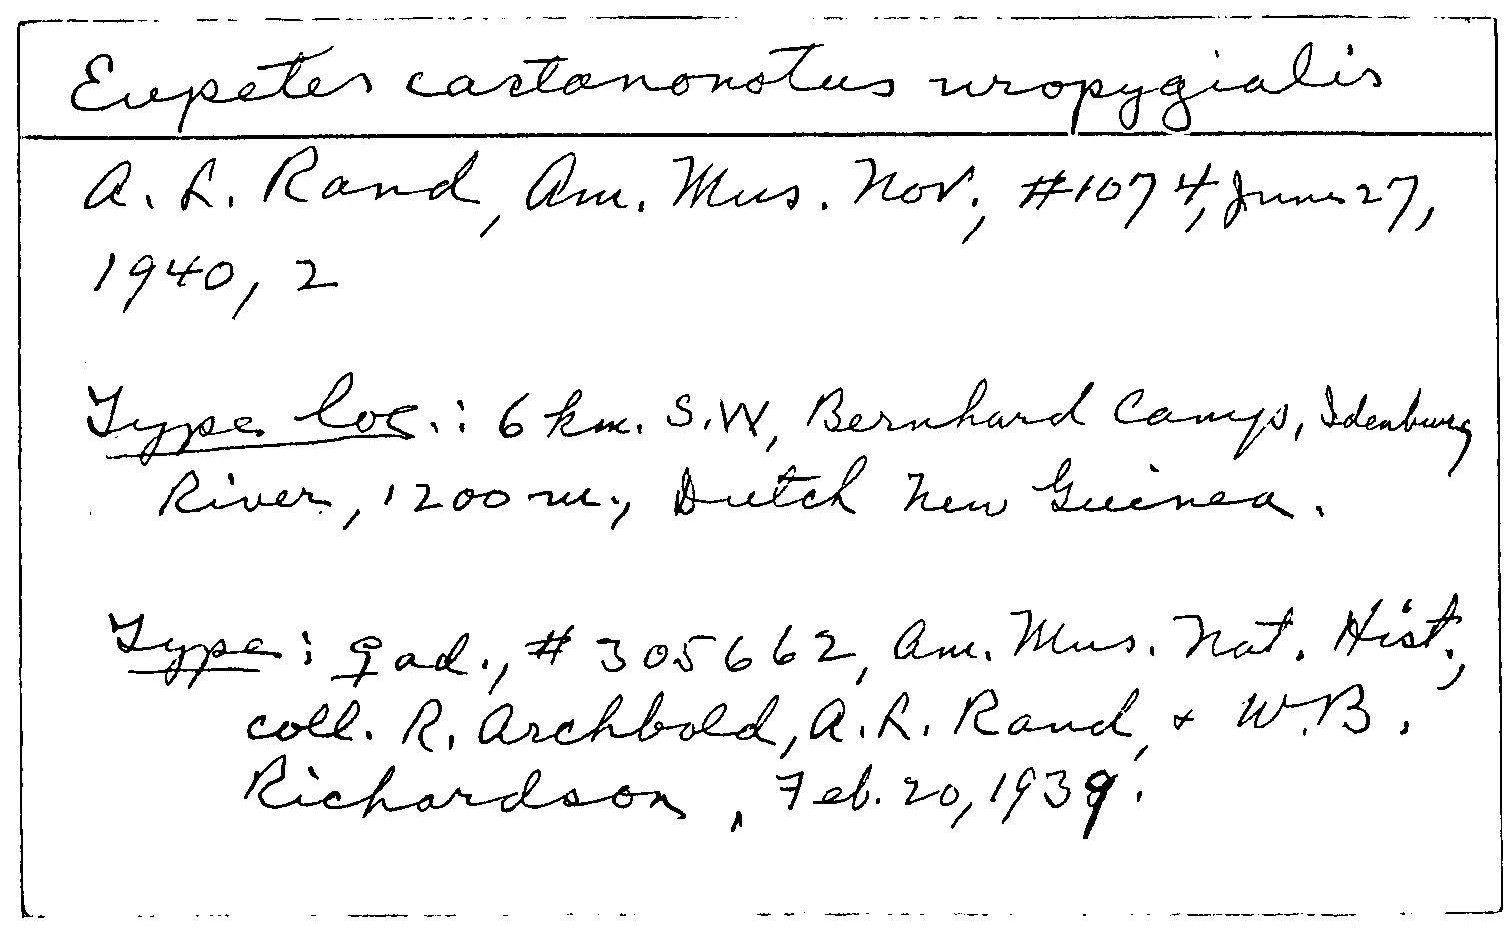 Eupetes castanonotus uropygialis
A. L. Rand, Am. Mus. Nov., #1074, June 27,
1940, 2
Type loc.: 6 km. S.W, Bernhard Camp, Idenburg
River, 1200 m., Dutch New Guinea.
Type: ♀ ad., #305662, Am. Mus. Nat. Hist.,
coll. R. Archbold, A. L. Rand, & W. B.
Richardson, Feb. 20, 1939.